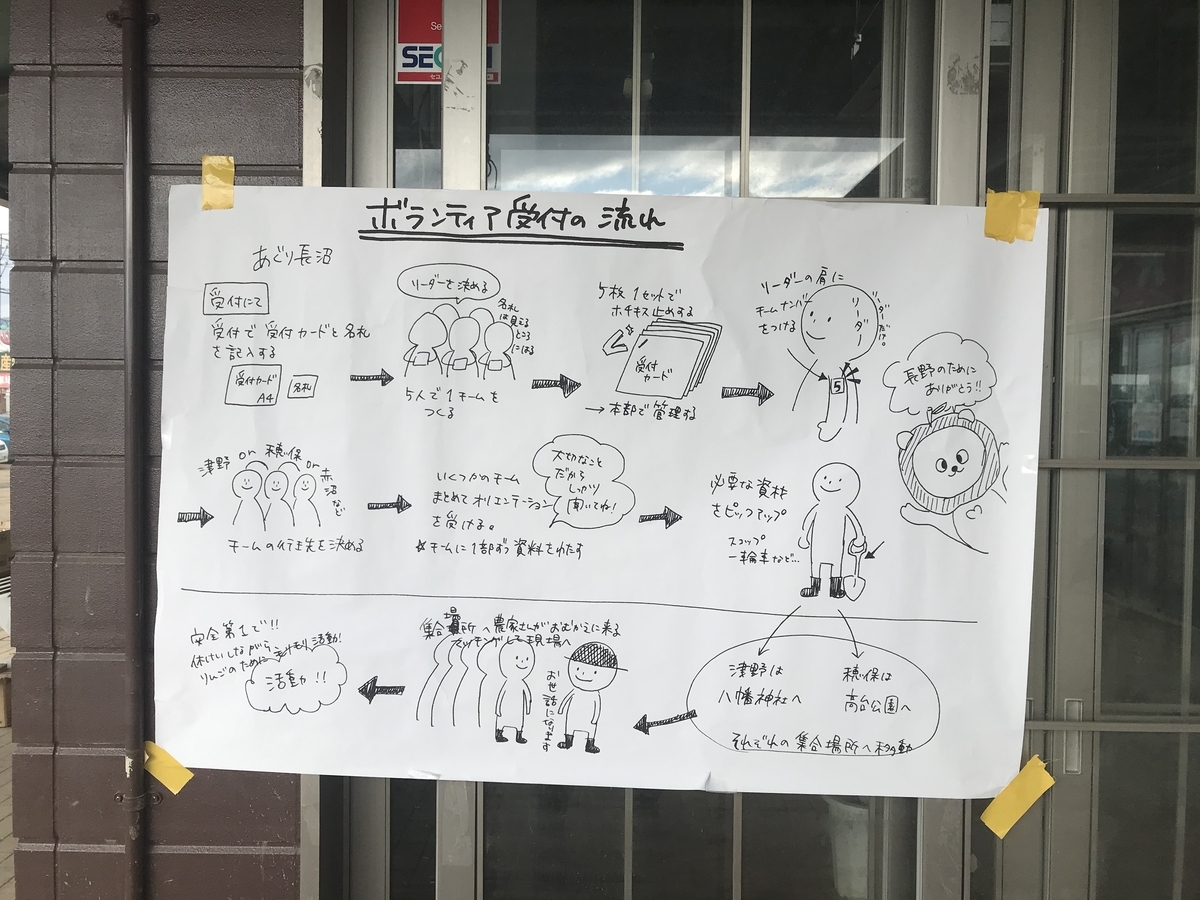 SECOM
ボランティア受付の流れ
あぐり長沼
受付にて
受付で受付カードと名札
を記入する
受付カード
A4
名札
リーダーを決める
名札
は見える
ところ
にはる
5人で1チームを
つくる
5枚1セットで
ホチキス止めする
受付
カード
→本部で管理する
リーダーの肩に
チームナンバー
をつける
リーダーだ!?。
5
長野のために
ありがとう!!
津野 or 穂保 or 赤沼など
チームの行き先を決める
いくつかのチーム
まとめてオリエンテーション
を受ける。
☆チームに1部ずつ資料をわたす
大切なこと
だから
しっかり
聞いてね!
必要な資材
をピックアップ
スコップ
一輪車など…
津野は
八幡神社へ
穂保は
高台公園へ
それぞれの集合場所へ移動
集合場所へ農家さんがおむかえに来る
マッチングして現場へ
お世話になります
安全第1で!!
休けいしながら
りんごのために
活動!!